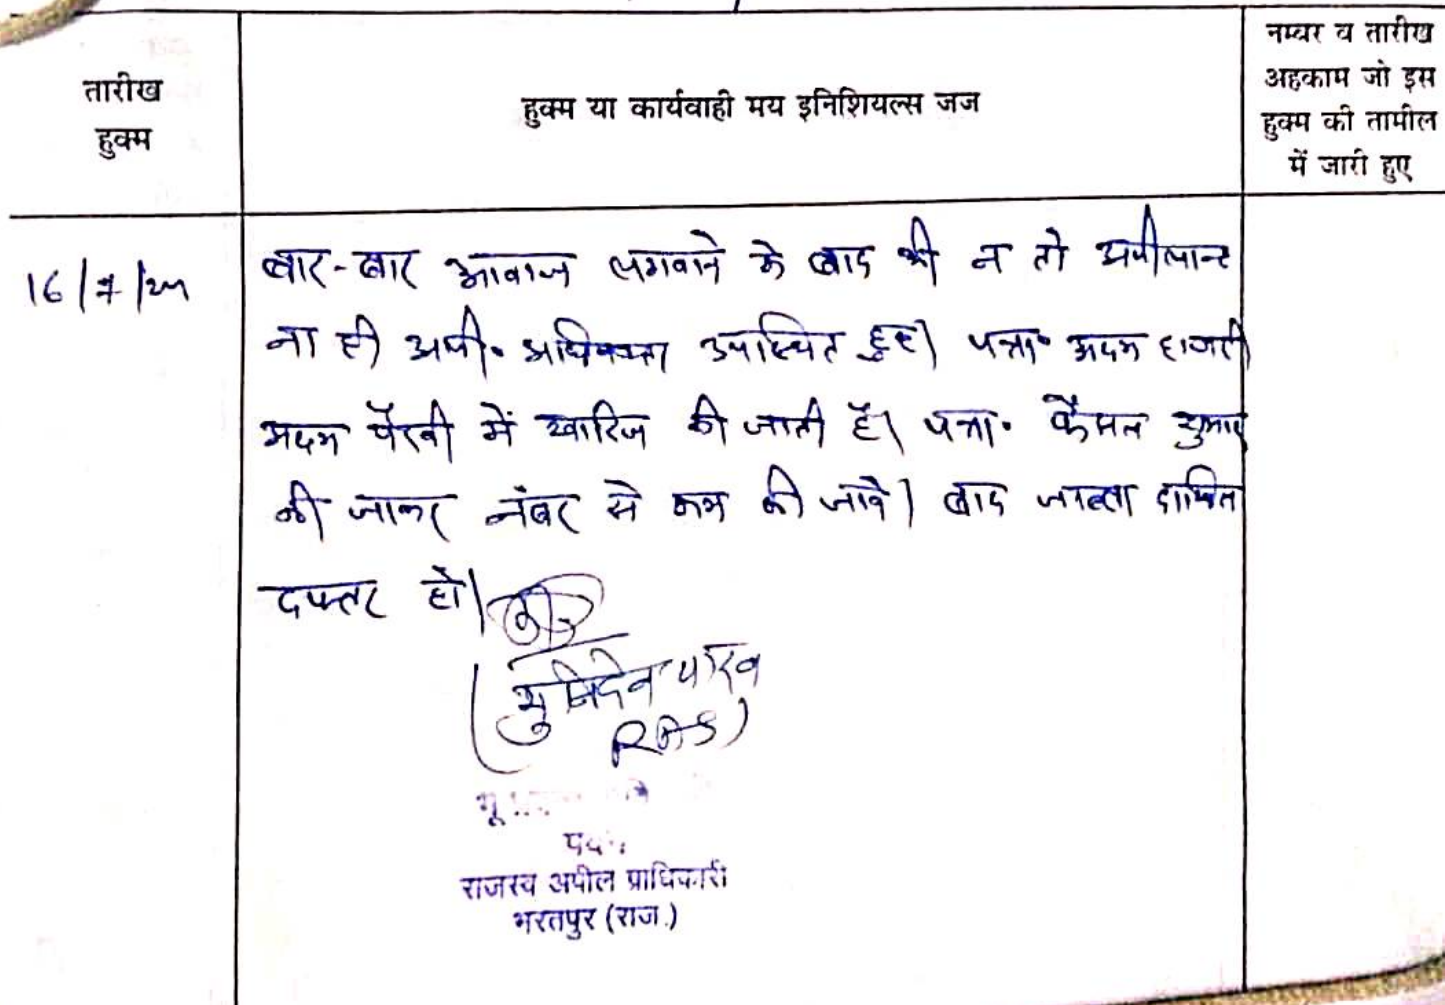 तारीख
हुक्म
हुक्म या कार्यवाही मय इनिशियल्स जज
नम्बर व तारीख
अहकाम जो इस
हुक्म की तामील
में जारी हुए
16/7/24
बार-बार आवाज लगवाने के बाद भी न तो अपीलान्ट
ना ही अपी॰ अधिवक्ता उपस्थित हुए। पत्रा॰ अदम हाजरी
अदम पैरवी में खारिज की जाती है। पत्रा॰ फैसल शुमार
की जाकर नंबर से कम की जावे। बाद जाब्ता दाखिल
दफ्तर हो।
(मुनिदेव यादव
RAS)
भू
पदेन
राजस्व अपील प्राधिकारी
भरतपुर (राज.)